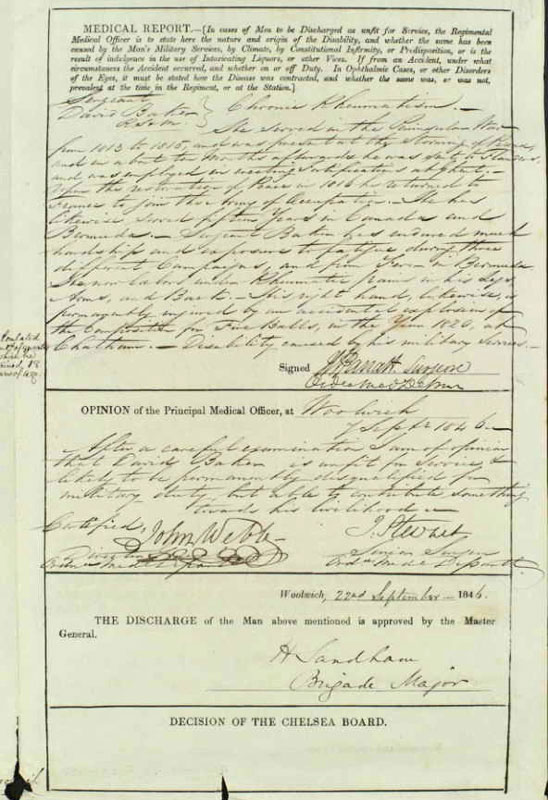 MEDICAL REPORT.—[In cases of Men to be Discharged as unfit for Service, the Regimental
Medical Officer is to state here the nature and origin of the Disability, and whether the same has been
caused by the Man's Military Services, by Climate, by Constitutional Infirmity, or Predisposition, or is the
result of indulgence in the use of Intoxicating Liquors, or other Vices. If from an Accident, under what
circumstances the Accident occurred, and whether on or off Duty. In Ophthalmic Cases, or other Disorders
of the Eyes, it must be stated here how the Disease was contracted, and whether the same was, or was not,
prevalent at the time in the Regiment, or at the Station.]
Sergeant
David Baker } Chronic Rheumatism.—
He served in the Peninsular War
from 1813 to 1815, and was present at the Storming of
and in about ten Months afterwards he was sent to Flanders.
and was employed in erecting fortifications at Ghent.—
Upon the restoration of Peace in 1816 he returned to
France to join the Army of Occupation.— He has
likewise served fifteen Years in Canada and
Bermuda.— Sergeant Baker has endured much
hardship and exposure to fatigue during three
different Campaigns, and Fever in Bermuda
He now labors under Rheumatic pains in his Legs,
Arms, and Back.— His right hand, likewise, is
permanently injured by an accidental explosion of
the Composition for Fire Balls, in the Year 1826, at
Chatham.— Disability caused by his military Services.—
Signed Surgeon
OPINION of the Principal Medical Officer, at Woolwich
7 Sept 1846—
After a careful examination I am of opinion
that David Baker is unfit for Service, &
likely to be permanently disqualified for
military duty, but able to contribute something
towards his livelihood—
Certified, John Webb J. Stewart
Senior Surgeon
Woolwich, 22nd September— 1846.
THE DISCHARGE of the Man above mentioned is approved by the Master
General.
H Sandham
Brigade Major
DECISION OF THE CHELSEA BOARD.